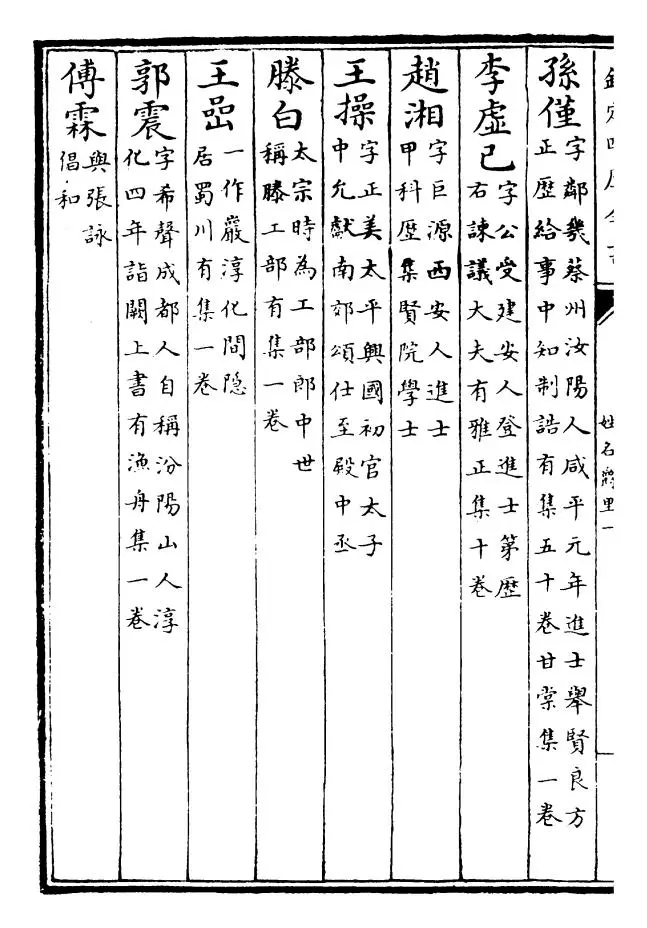 欽定四庫全書
姓名爵里一
孫僅
字鄰幾蔡州汝陽人咸平元年進士舉賢良方
正歷給事中知制誥有集五十卷甘棠集一卷
李虛己
字公受建安人登進士第歷
右諫議大夫有雅正集十卷
趙湘
字巨源西安人進士
甲科歷集賢院學士
王操
字正美太平興國初官太子
中允獻南郊頌仕至殿中丞
滕白
太宗時為工部郎中世
稱滕工部有集一卷
王嵒
一作巖淳化間隐
居蜀川有集一卷
郭震
字希聲成都人自稱汾陽山人淳
化四年詣闕上書有漁舟集一卷
傅霖
與張詠
倡和